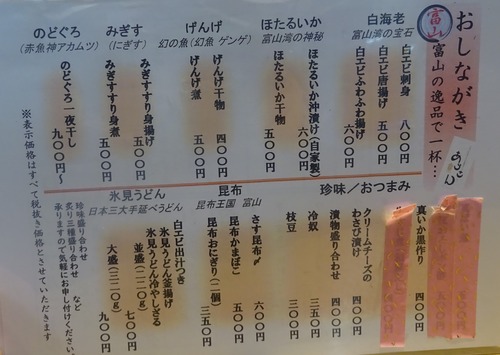 おしながき
富山
富山の逸品で一杯…
白海老
富山湾の宝石
白エビ刺身 八〇〇円
白エビ唐揚げ 五〇〇円
白エビふわふわ揚げ 六〇〇円
ほたるいか
富山湾の神秘
ほたるいか沖漬け(自家製) 六〇〇円
ほたるいか干物 五〇〇円
げんげ
幻の魚(幻魚 ゲンゲ)
げんげ干物 四〇〇円
げんげ煮 五〇〇円
みぎす
(にぎす)
みぎすすり身揚げ 五〇〇円
みぎすすり身煮 五〇〇円
のどぐろ
(赤魚神アカムツ)
のどぐろ一夜干し 九〇〇円~
※表示価格はすべて税抜き価格とさせていただきます
珍味/おつまみ
真いか黒作り 四〇〇円
クリームチーズの
わさび漬け 四〇〇円
漬物盛り合わせ 四〇〇円
冷奴 三五〇円
枝豆 三〇〇円
昆布
昆布王国 富山
さす昆布〆 六〇〇円
昆布かまぼこ 五〇〇円
昆布おにぎり(二個) 三五〇円
氷見うどん
日本三大手延べうどん
白エビ出汁つき
氷見うどん釜揚げ
氷見うどん冷やしざる
並盛(一二〇g) 七〇〇円
大盛(二二〇g) 九〇〇円
珍味盛り合わせ
炙り三種盛り合わせ など
承りますので気軽にお申し付けください。